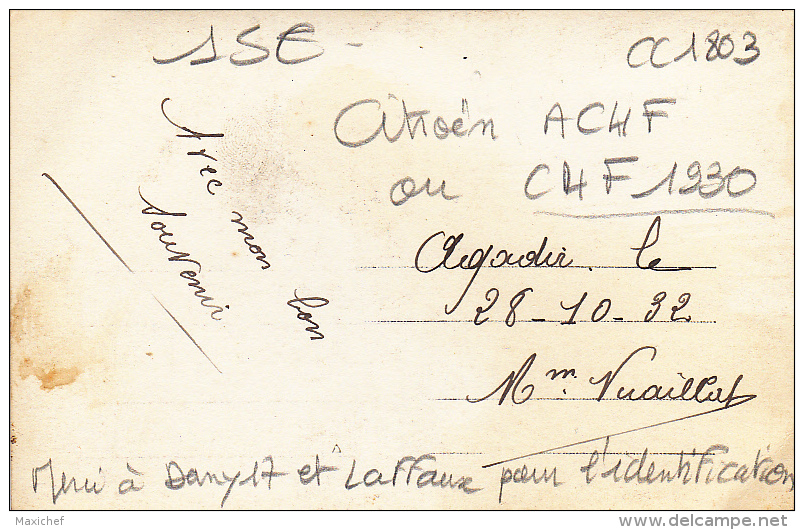 15E -
CC1803
Citroën AC4F
ou C4F 1930
Avec mon bon
souvenir
Agadir. le
28-10-32
Mm. Vuaillat
Merci à Dany17 et Laffaux pour l'identification
Maxichef
delcampe.net